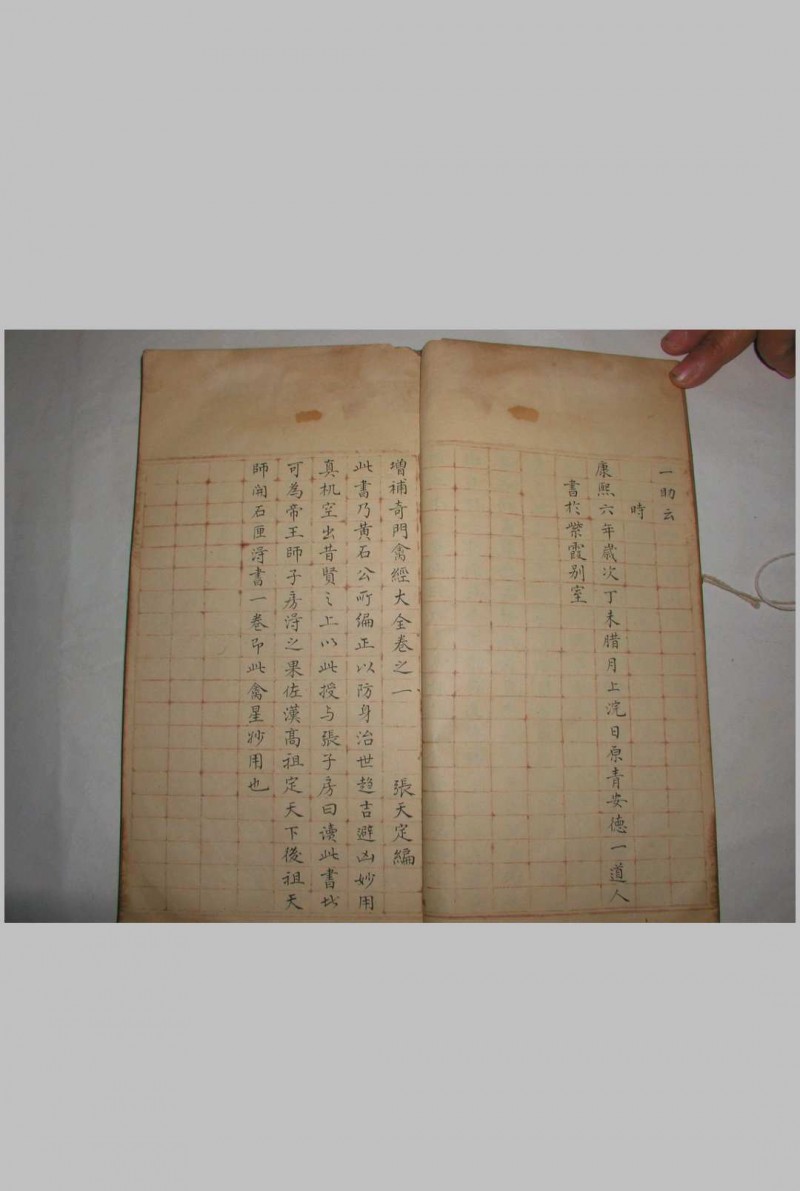 一助云
時
康熙六年歲次丁未腊月上浣日原青安德一道人
書於紫霞别室
增補奇門禽經大全卷之一 張天定編
此書乃黃石公所編正以防身治世趋吉避凶妙用
真机空出昔賢之上以此授与張子房曰读此書
可為帝王師子房淂之果佐漢高祖定天下後祖天
師開石匣淂書一卷即此禽星妙用也